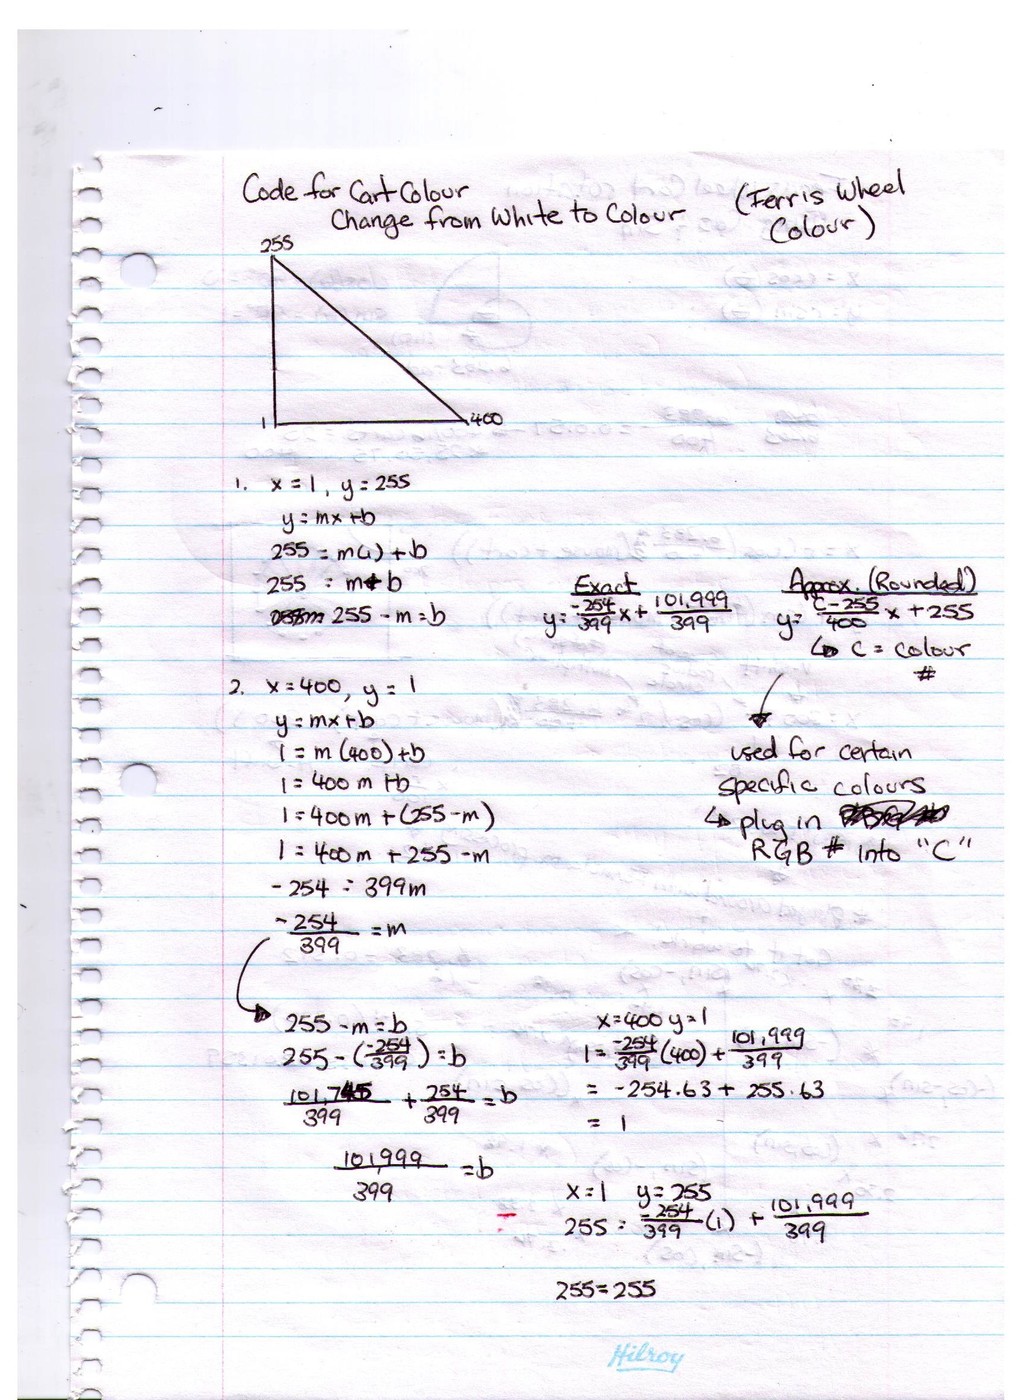 Code for Cart Colour
Change from White to Colour
(Ferris Wheel
Colour)
255
1
400
1. x = 1, y = 255
y = mx + b
255 = m(1) + b
255 = m + b
255 - m = b
Exact
y = -254/399 x + 101,999/399
Approx. (Rounded)
y = C-255/400 x + 255
↳ C = colour
#
used for certain
specific colours
↳ plug in
RGB # into "C"
2. x = 400, y = 1
y = mx + b
1 = m (400) + b
1 = 400 m + b
1 = 400m + (255 - m)
1 = 400m + 255 - m
-254 = 399m
-254/399 = m
255 - m = b
255 - (-254/399) = b
101,745/399 + 254/399 = b
101,999/399 = b
x = 400 y = 1
1 = -254/399 (400) + 101,999/399
= -254.63 + 255.63
= 1
x = 1 y = 255
255 = -254/399 (1) + 101,999/399
255 = 255
Hilroy